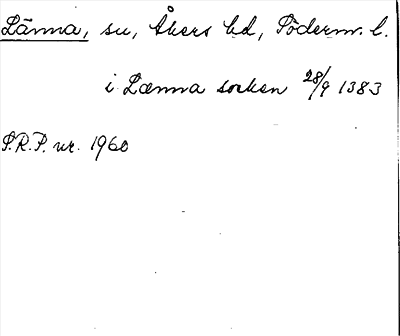 Länna, sn, Åkers hd, Söderm. l.
i Lænna soken 28/9 1383
S.R.P. nr. 1960